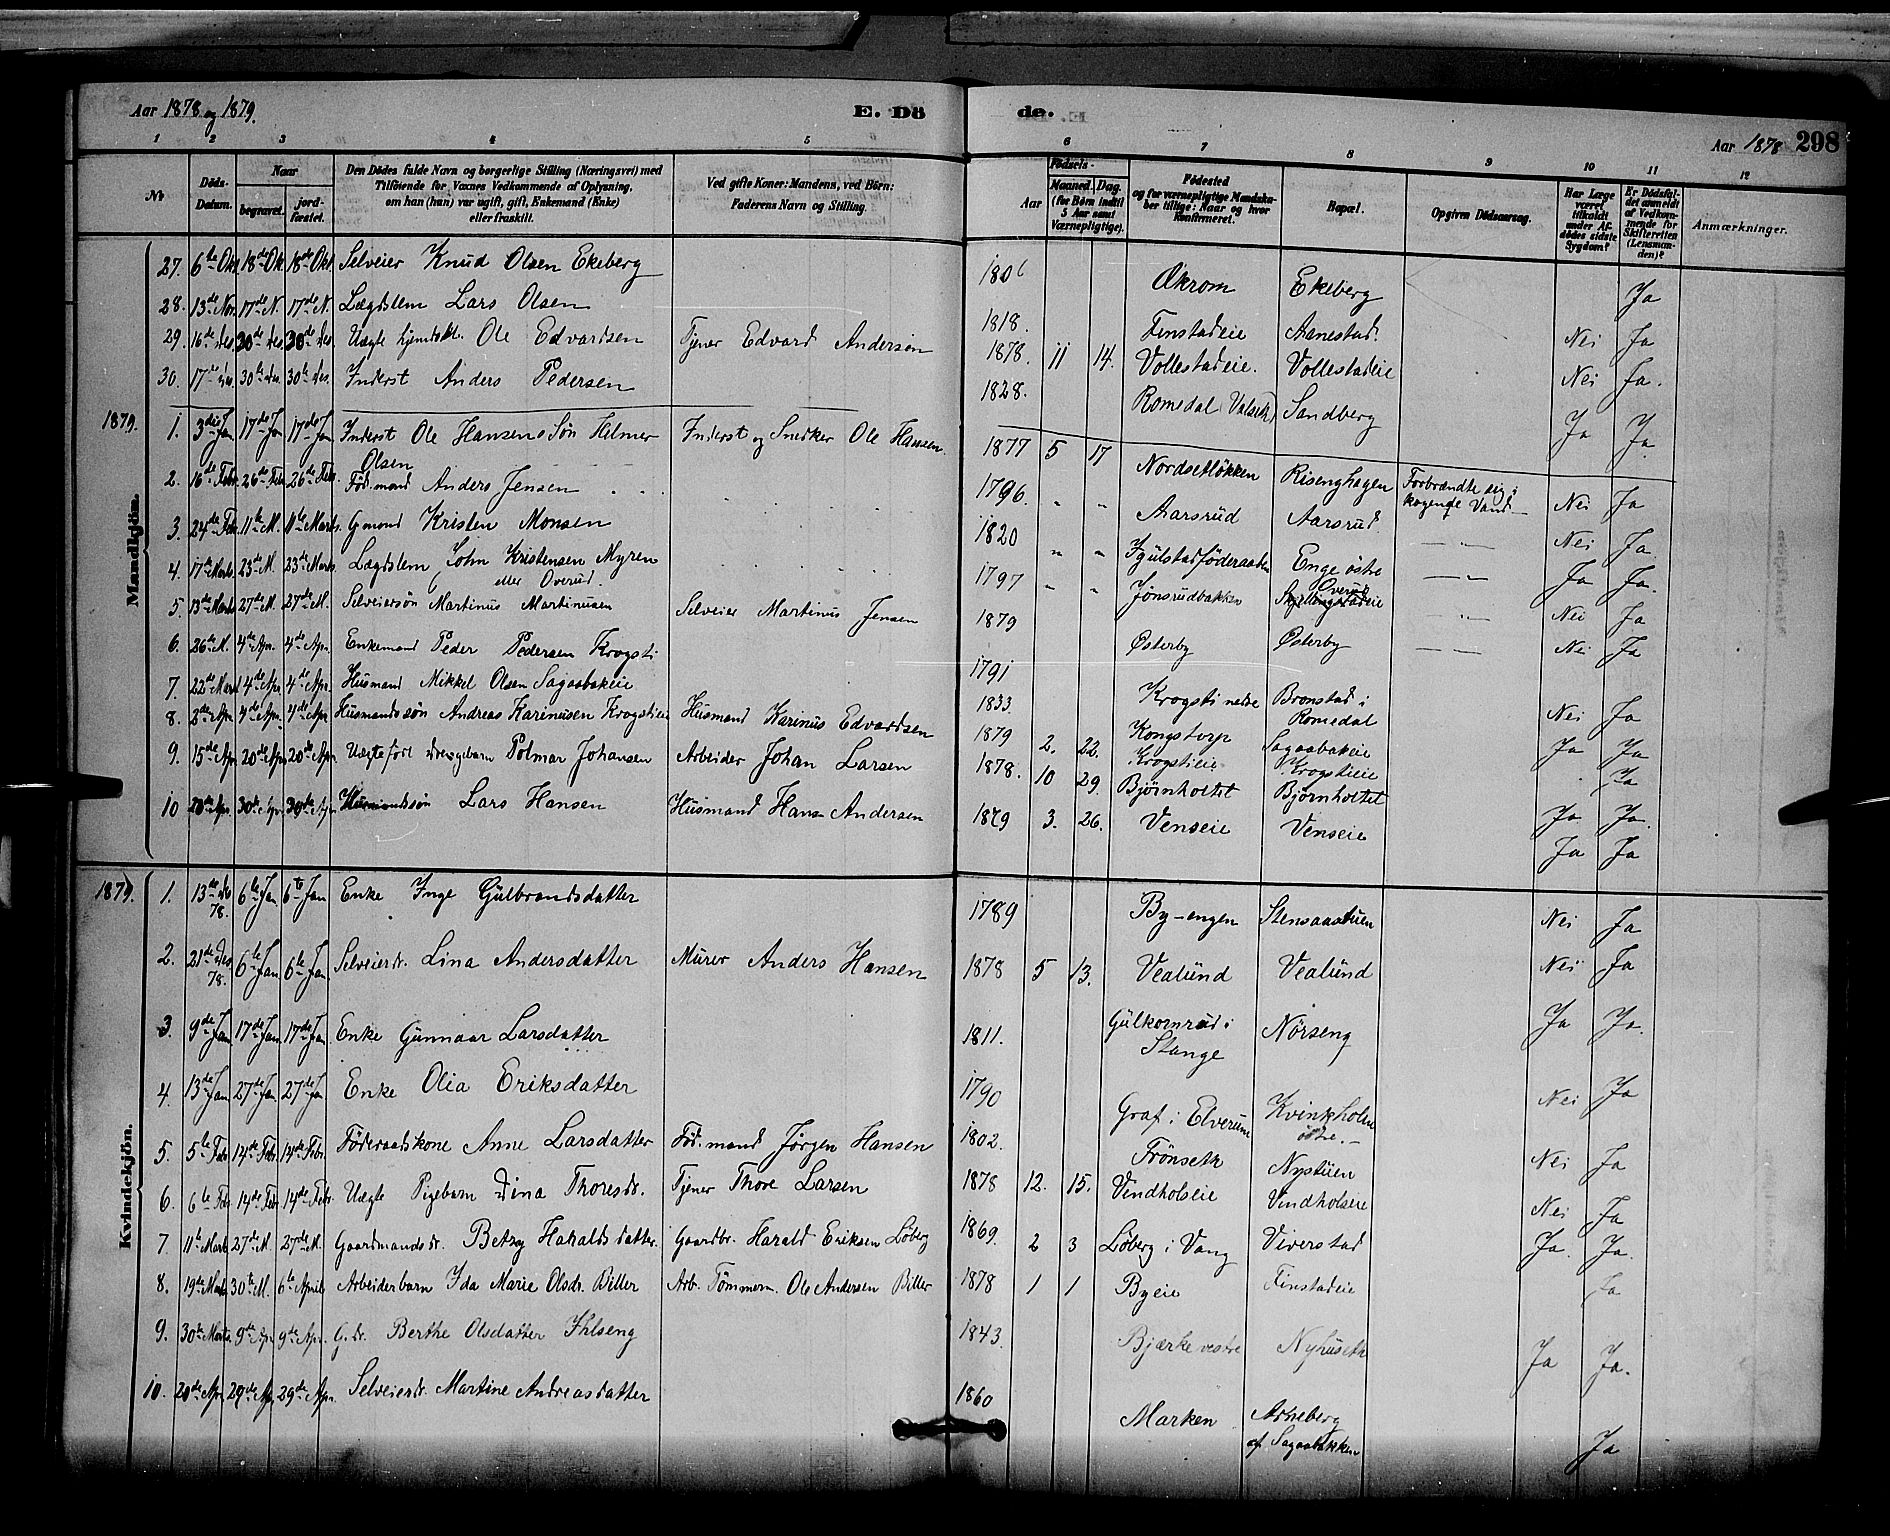 Aar 1878 og 1879. E. Dö
1 2 3 4 5
No
Döds-Datum.
Naar
begravet.
jord-fæstet.
Den Dödes fulde Navn og borgerlige Stilling (Næringsvei) med
Tilföiende for Voxnes Vedkommende af Oplysning,
om han (hun) var ugift, gift, Enkemand (Enke)
eller fraskilt.
Ved gifte Koner: Mandens, ved Börn:
Faderens Navn og Stilling.
27. 6te Okt 18de Ok 18de Okt. Selveier Knud Olsen Ekeberg
28. 13de Nov. 17de N. 17de N. Lægdslem Lars Olsen
29. 16de Des 30te des. 30te des Uægte Ole Edvardsen Tjener Edvard Andersen
30. 17de des. 30te des. 30te des. Inderst Anders Pedersen
1879.
Mandkjön.
1. 3die Jan 17de Jan 17de Jan Inderst Ole Hansens Søn Helmer Inderst og Snedker Ole Hansen
Olsen
2. 16de Febr. 26de Feb. 26de Feb. Föd.mand Anders Jensen
3. 24de Feb 11te M. 11te Marts. Gmand Kristen Monsen
4. 17de Marts. 23de M. 23de Marts Lægdslem John Kristensen Myren
eller Overud
5. 13de Marts 27de M. 27de M. Selveiersön Martinus Martinusen Selveier Martinus Jensen
6. 26de M. 4de Apr. 4de Apr. Enkemand Peder Pedersen Krogsti
7. 22de Marts 4de Apr. 4de Apr. Husmand Mikkel Olsen Sagaabakeie
8. 2den Apr. 4de Apr. 4de Apr Husmandssön Andreas Karinusen Krogstieie Husmand Karinus Edvardsen
9. 15de Apr 20de Apr 20de Apr. Uægtefödt drengebarn Polmar Johansen Arbeider Johan Larsen
10 20de Apr. 30te Apr. 30te Apr. Husmandssön Lars Hansen Husmand Hans Andersen
1879.
Kvindekjön.
1. 13de De 78. 6te Jan 6te Jan Enke Inge Gulbrandsdatter
2. 21de Des 78. 6te Jan 6te Jan Selveierdr. Lina Andersdatter Murer Anders Hansen
3. 9de Jan 17de Jan 17de Jan Enke Gunnaar Larsdatter
4. 13de Jan 27de Jan 27de Jan Enke Olia Eriksdatter
5. 5te Febr 14de Febr. 14de Febr. Föderaadskone Anne Larsdatter Föd.mand Jørgen Hansen
6. 6te Feb. 14de Feb. 14de Febr. Uægte Pigebarn Dina Thoresdr. Tjener Thore Larsen
7. 11te Marts 27de M. 27de M. Gaardmandsdr. Betzy Haraldsdatter. Gaardbr. Harald Eriksen Løberg
8. 19de Marts 30te M. 6te April Arbeiderbarn Ida Marie Olsdr. Biller Arb. Tömmerm. Ole Andersen Biller
9. 30te Marts 9de Apr. 9de Apr. G. dr. Berthe Olsdatter Ihlseng
10. 20de Apr 29de Apr 29de Apr. Selveierdr. Martine Andreasdatter
de. Aar 1878 298
6 7 8 9 10 11 12
Födsels-
Aar
Maaned. Dag.
(for Börn indtil
5 Aar samt
Værnepligtige).
Födested
og for værnepligtige Mandska-
ber tillige: Naar og hvor
konfirmeret.
Bopæl.
Opgiven Dödsaarsag.
Har Læge
været
tilkaldt
under Af-
dödes sidste
Sygdom?
Er Dödsfal-
det anmeldt
af Vedkom-
mende for
Skifteretten
(Lensman-
den)?
Anmærkninger.
1806 Økrom Ekeberg Ja
1818. Finstadeie Aanestad. Nei Ja
1878. 11 14. Vollestadeie. Vollestadeie Nei Ja.
1828. Romedal (Valseth) Sandberg Ja Ja
1877 5 17 Nordsetløkken Risenghagen Forbrændte sig i kogende Vand Nei Ja
1796. " " Aarsrud Aarsrud. — — Nei Ja
1820 " " Igulstadföderaaden Enge østre — — Ja Ja.
1797 " " Jønsrudbakken Overud Skjellingstadeie — — Nei Ja
1879 Østerby Østerby — — Nei Ja
1791 Krogsti nedre Bronstad i Romedal Nei Ja
1833. Kongstorp Sagaabakeie Ja Ja
1879 2. 22. Krogstieie Krogstieie Ja
1878. 10 29. Bjørnholtet Bjørnholtet Ja Ja.
1879 3. 26. Venseie Venseie Ja Ja
1789 By-engen Stensaastuen Nei Ja
1878 5 13. Vealund Vealund Nei Ja
1811. Gulkornrud i Stange Nørseng Ja Ja.
1790 Graf i Elverum Kvinkholm østre.- Nei Ja
1802. Frönseth Nystuen Nei Ja
1878 12. 15. Vindholseie Vindholseie Nei Ja
1869. 2 3 Løberg i Vang Viverstad Ja. Ja.
1878 1 1 Byeie Finstadeie Ja
1843. Bjærke vestre Nyhuseth Ja Ja.
1860 Marken Arneberg af Sagaabakken Ja